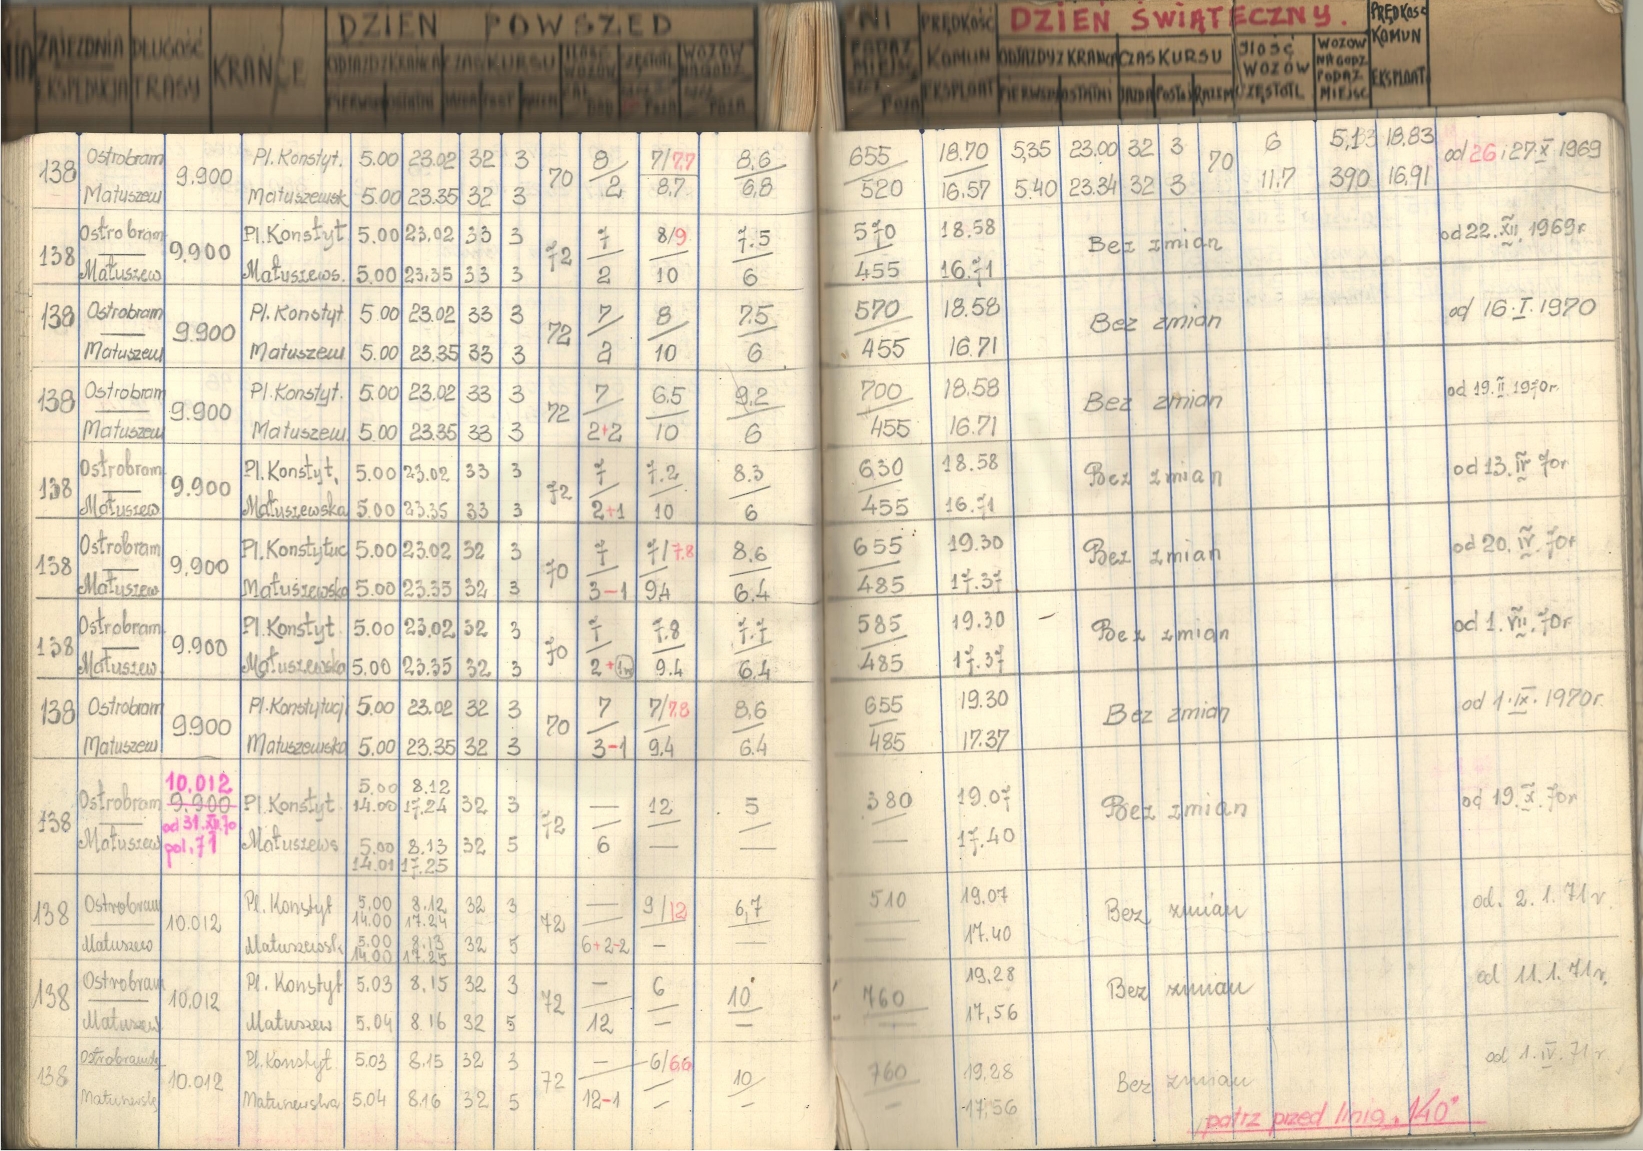 DZIEŃ POWSZEDNI PRĘDKOŚĆ DZIEŃ ŚWIĄTECZNY. PRĘDKOŚĆ
ZAJEZDNIA DŁUGOŚĆ KRAŃCE ODJAZD Z KRAŃCA CZAS KURSU ILOŚĆ WOZÓW CZĘSTOTL WOZÓW NA GODZ KOMUN ODJAZDY Z KRAŃCA CZAS KURSU ILOŚĆ WOZÓW WOZÓW NA GODZ KOMUN
EKSPEDYCJA TRASY PIERWSZ OSTATNI JAZDA POST RAZEM EKSPLOAT PIERWSZ OSTATNI JAZDA POSTÓJ RAZEM CZĘSTOTL PODAŻ MIEJSC EKSPLOAT
138 Ostrobram 9.900 Pl. Konstyt. 5.00 23.02 32 3 70 8 7/7.7 8,6 655 18.70 5,35 23.00 32 3 70 6 5,13 18,83 od 26 i 27.X 1969
Matuszew Matuszewsk 5.00 23.35 32 3 2 8.7 6,8 520 16.57 5.40 23.34 32 3 11.7 390 16,91
138 Ostrobram 9,900 Pl. Konstyt 5.00 23.02 33 3 72 7 8/9 7.5 570 18.58 Bez zmian od 22.XII.1969r
Matuszew Matuszews. 5.00 23.35 33 3 2 10 6 455 16.71
138 Ostrobram 9.900 Pl. Konstyt 5.00 23.02 33 3 72 7 8 7.5 570 18.58 Bez zmian od 16.I.1970
Matuszew Matuszew 5.00 23.35 33 3 2 10 6 455 16.71
138 Ostrobram 9.900 Pl. Konstyt. 5.00 23.02 33 3 72 7 6.5 9,2 700 18.58 Bez zmian od 19.II.1970r.
Matuszew Matuszew. 5.00 23.35 33 3 2+2 10 6 455 16.71
138 Ostrobram 9.900 Pl. Konstyt. 5.00 23.02 33 3 72 7 7.2 8.3 630 18.58 Bez zmian od 13.IV 70r
Matuszew Matuszewska 5.00 23.35 33 3 2+1 10 6 455 16.71
138 Ostrobram 9,900 Pl. Konstytuc 5.00 23.02 32 3 70 7 7/7.8 8.6 655 19.30 Bez zmian od 20.IV.70r
Matuszew Matuszewska 5.00 23.35 32 3 3-1 9.4 6.4 485 17.37
138 Ostrobram 9.900 Pl. Konstyt. 5.00 23.02 32 3 70 7 7.8 7.7 585 19.30 Bez zmian od 1.VII.70r
Matuszew. Matuszewska 5.00 23.35 32 3 2+ 9.4 6.4 485 17.37
138 Ostrobram 9.900 Pl. Konstytucji 5.00 23.02 32 3 70 7 7/7.8 8,6 655 19.30 Bez zmian od 1.IX.1970r.
Matuszew Matuszewska 5.00 23.35 32 3 3-1 9.4 6.4 485 17.37
10.012 5.00 8.12
138 Ostrobram 9.900 Pl. Konstyt 14.00 17.24 32 3 72 — 12 5 380 19.07 Bez zmian od 19.X.70r
od 31.XII.70
Matuszew pol. 71 Matuszews 5.00 8.13 32 5 6 — — — 17.40
14.01 17.25
138 Ostrobram 10.012 Pl. Konstyt 5.00 8.12 32 3 72 — 9/12 6,7 510 19.07 Bez zmian od. 2.1.71r.
14.00 17.24
Matuszew Matuszewsk 5.00 8.13 32 5 6+2-2 — — — 17.40
14.00 17.25
138 Ostrobram 10.012 Pl. Konstyt 5.03 8.15 32 3 72 — 6 10 760 19,28 Bez zmian od 11.1.71r.
Matuszew Matuszew 5.04 8.16 32 5 12 — — — 17,56
138 Ostrobramska 10.012 Pl. Konstyt 5.03 8.15 32 3 72 — 6/6,6 10 760 19,28 Bez zmian od 1.IV.71r
Matuszewska 5.04 8.16 32 5 12-1 — — — 17,56
patrz przed linią „140"